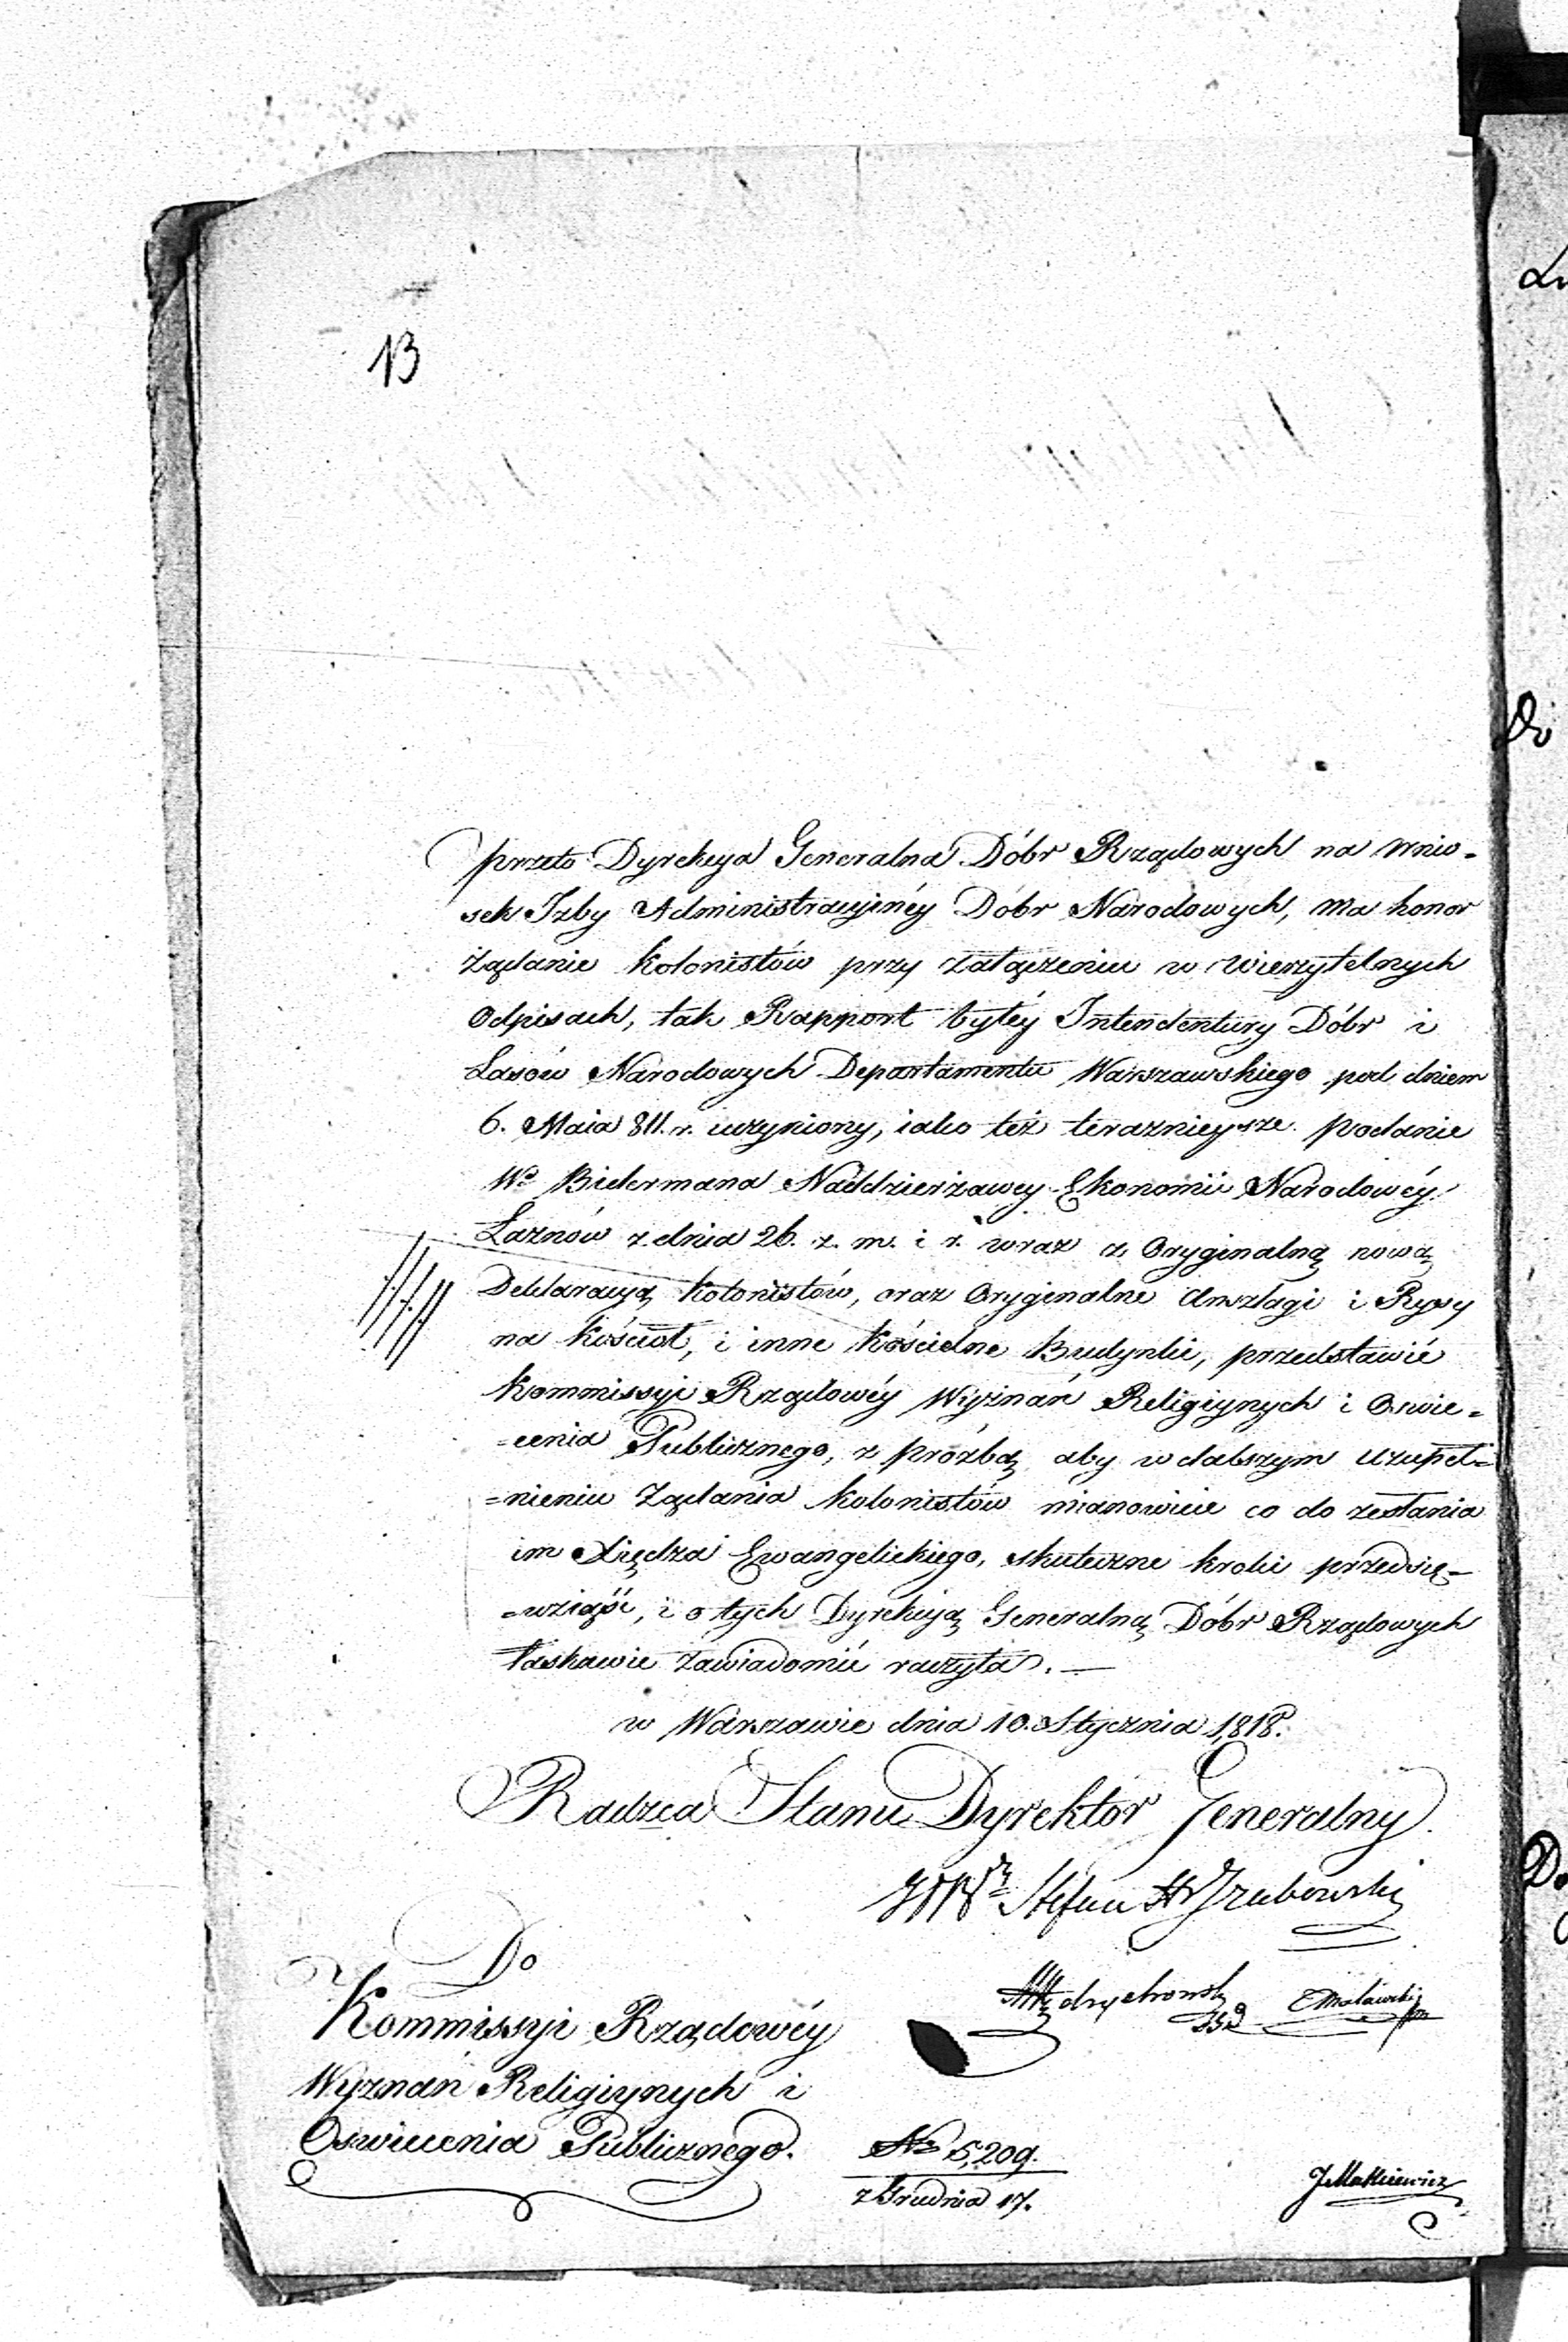 13
przeto Dyrekcya Generalna Dóbr Rządowych na wnio-
sek Izby Administracyinéy Dóbr Narodowych, ma honor
żądanie kolonistów przy załączeniu w wierzytelnych
Odpisach, tak Rapport byłéy Intendentury Dóbr i
Lasów Narodowych Departamentu Warszawskiego pod dniem
6. Maia 811. r. uczyniony, iako też teraznieysze podanie
Wo Bidermana Naddzierżawcy Ekonomii Narodowéy
Łaznów z dnia 26. z. m. i r. wraz z Oryginalną nową
Deklaracyą kolonistów, oraz Oryginalne Anszlagi i Rysy
na kościoł, i inne kościelne Budynki, przedstawić
Kommissyi Rządowéy Wyznań Religiynych i Oswie-
-cenia Publicznego, z prożbą aby w dalszym uzupeł-
-nieniu Żądania kolonistów mianowicie co do zesłania
im Xiędza Ewangelickiego, skuteczne kroki przedsię-
-wziąść, i o tych Dyrekcyą Generalną Dóbr Rządowych
łaskawie zawiadomić raczyła. —
w Warszawie dnia 10. Stycznia 1818.
Radzca Stanu Dyrektor Generalny
Stefan Hr Grabowski
Do
Kommissyi Rządowéy
Wyznań Religiynych i
Oswiecenia Publicznego.
No 5,209.
z Grudnia 17.